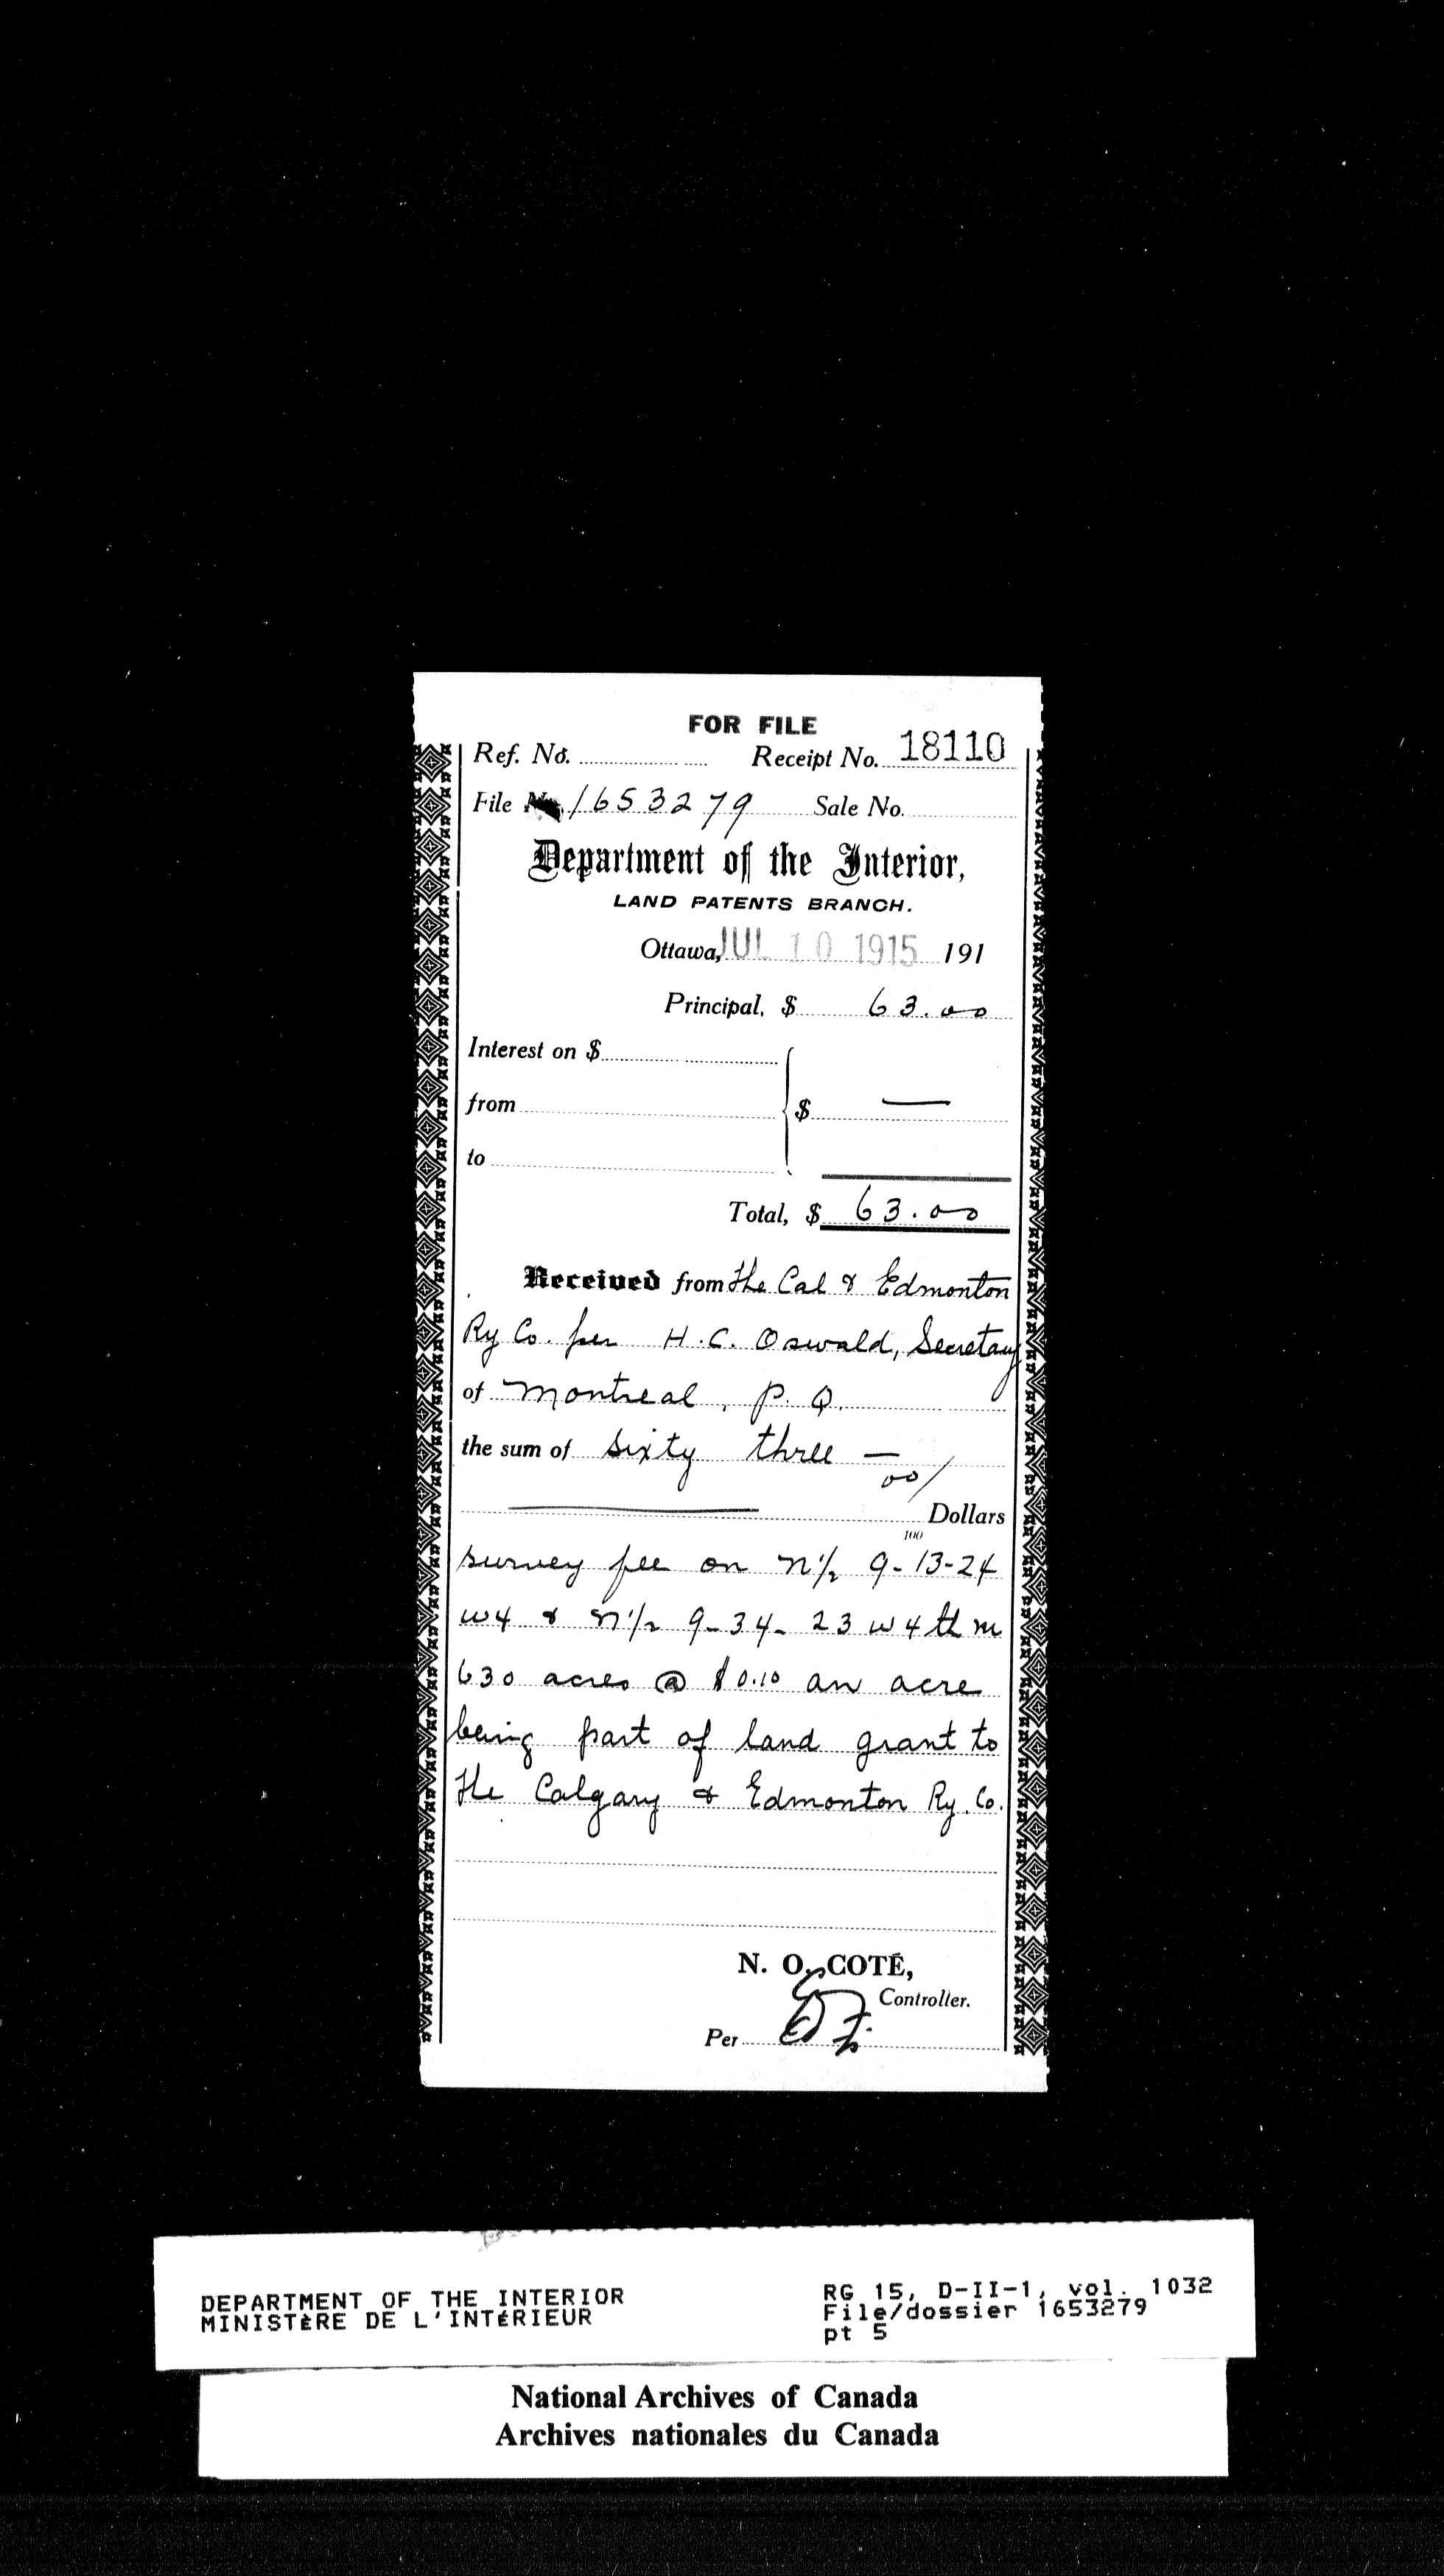 FOR FILE
Ref. No. Receipt No. 18110
File No. 1653279 Sale No.
Department of the Interior,
LAND PATENTS BRANCH.
Ottawa, JUL 10 1915 191
Principal, $ 63.00
Interest on $
from $ —
to
Total, $ 63.00
Received from the Cal & Edmonton
Ry Co. per H.C. Oswald, Secretary
of Montreal, P.Q.
the sum of Sixty three — 00/
Dollars
100
survey fee on N½ 9-13-24
W4 & N½ 9-34-23 W4th M
630 acres @ $0.10 an acre
being part of land grant to
the Calgary & Edmonton Ry. Co.
N. O. COTÉ,
Controller.
Per
DEPARTMENT OF THE INTERIOR
MINISTÈRE DE L'INTÉRIEUR
RG 15, D-II-1, vol. 1032
File/dossier 1653279
pt 5
National Archives of Canada
Archives nationales du Canada